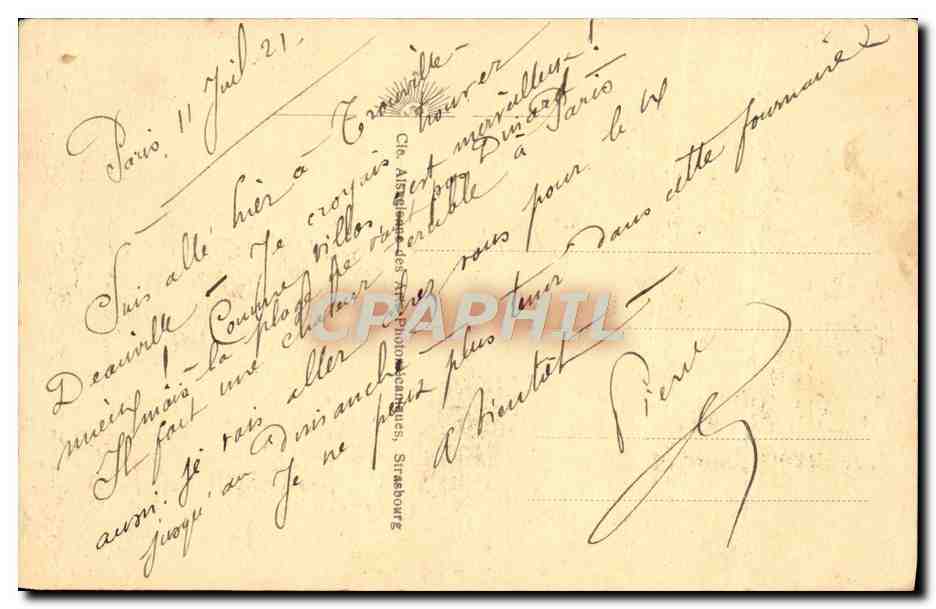 Paris, 11 Juil. 21.
Suis allé hier à Trouville-
Deauville - Je croyais trouver
mieux ! Comme villas, c'est merveilleux !
mais la plage ne vaut pas Dinard
Il fait une chaleur terrible à Paris
aussi je vais aller chez vous pour le 14
jusqu'au Dimanche
Je ne peux plus tenir dans cette fournaise
à Bientôt -
Pierre
Cie. Alsacienne des Arts Photomécaniques, Strasbourg
CPAPHIL